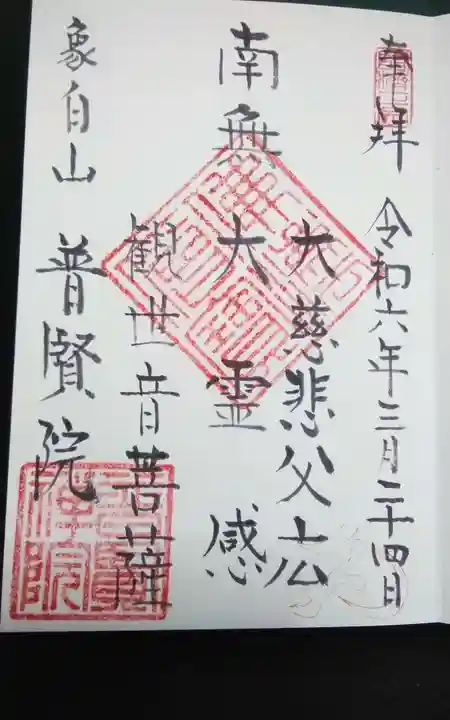 奉拝 令和六年三月二十四日
大慈悲父
南無大霊感
観世音菩薩
象自山 普賢院